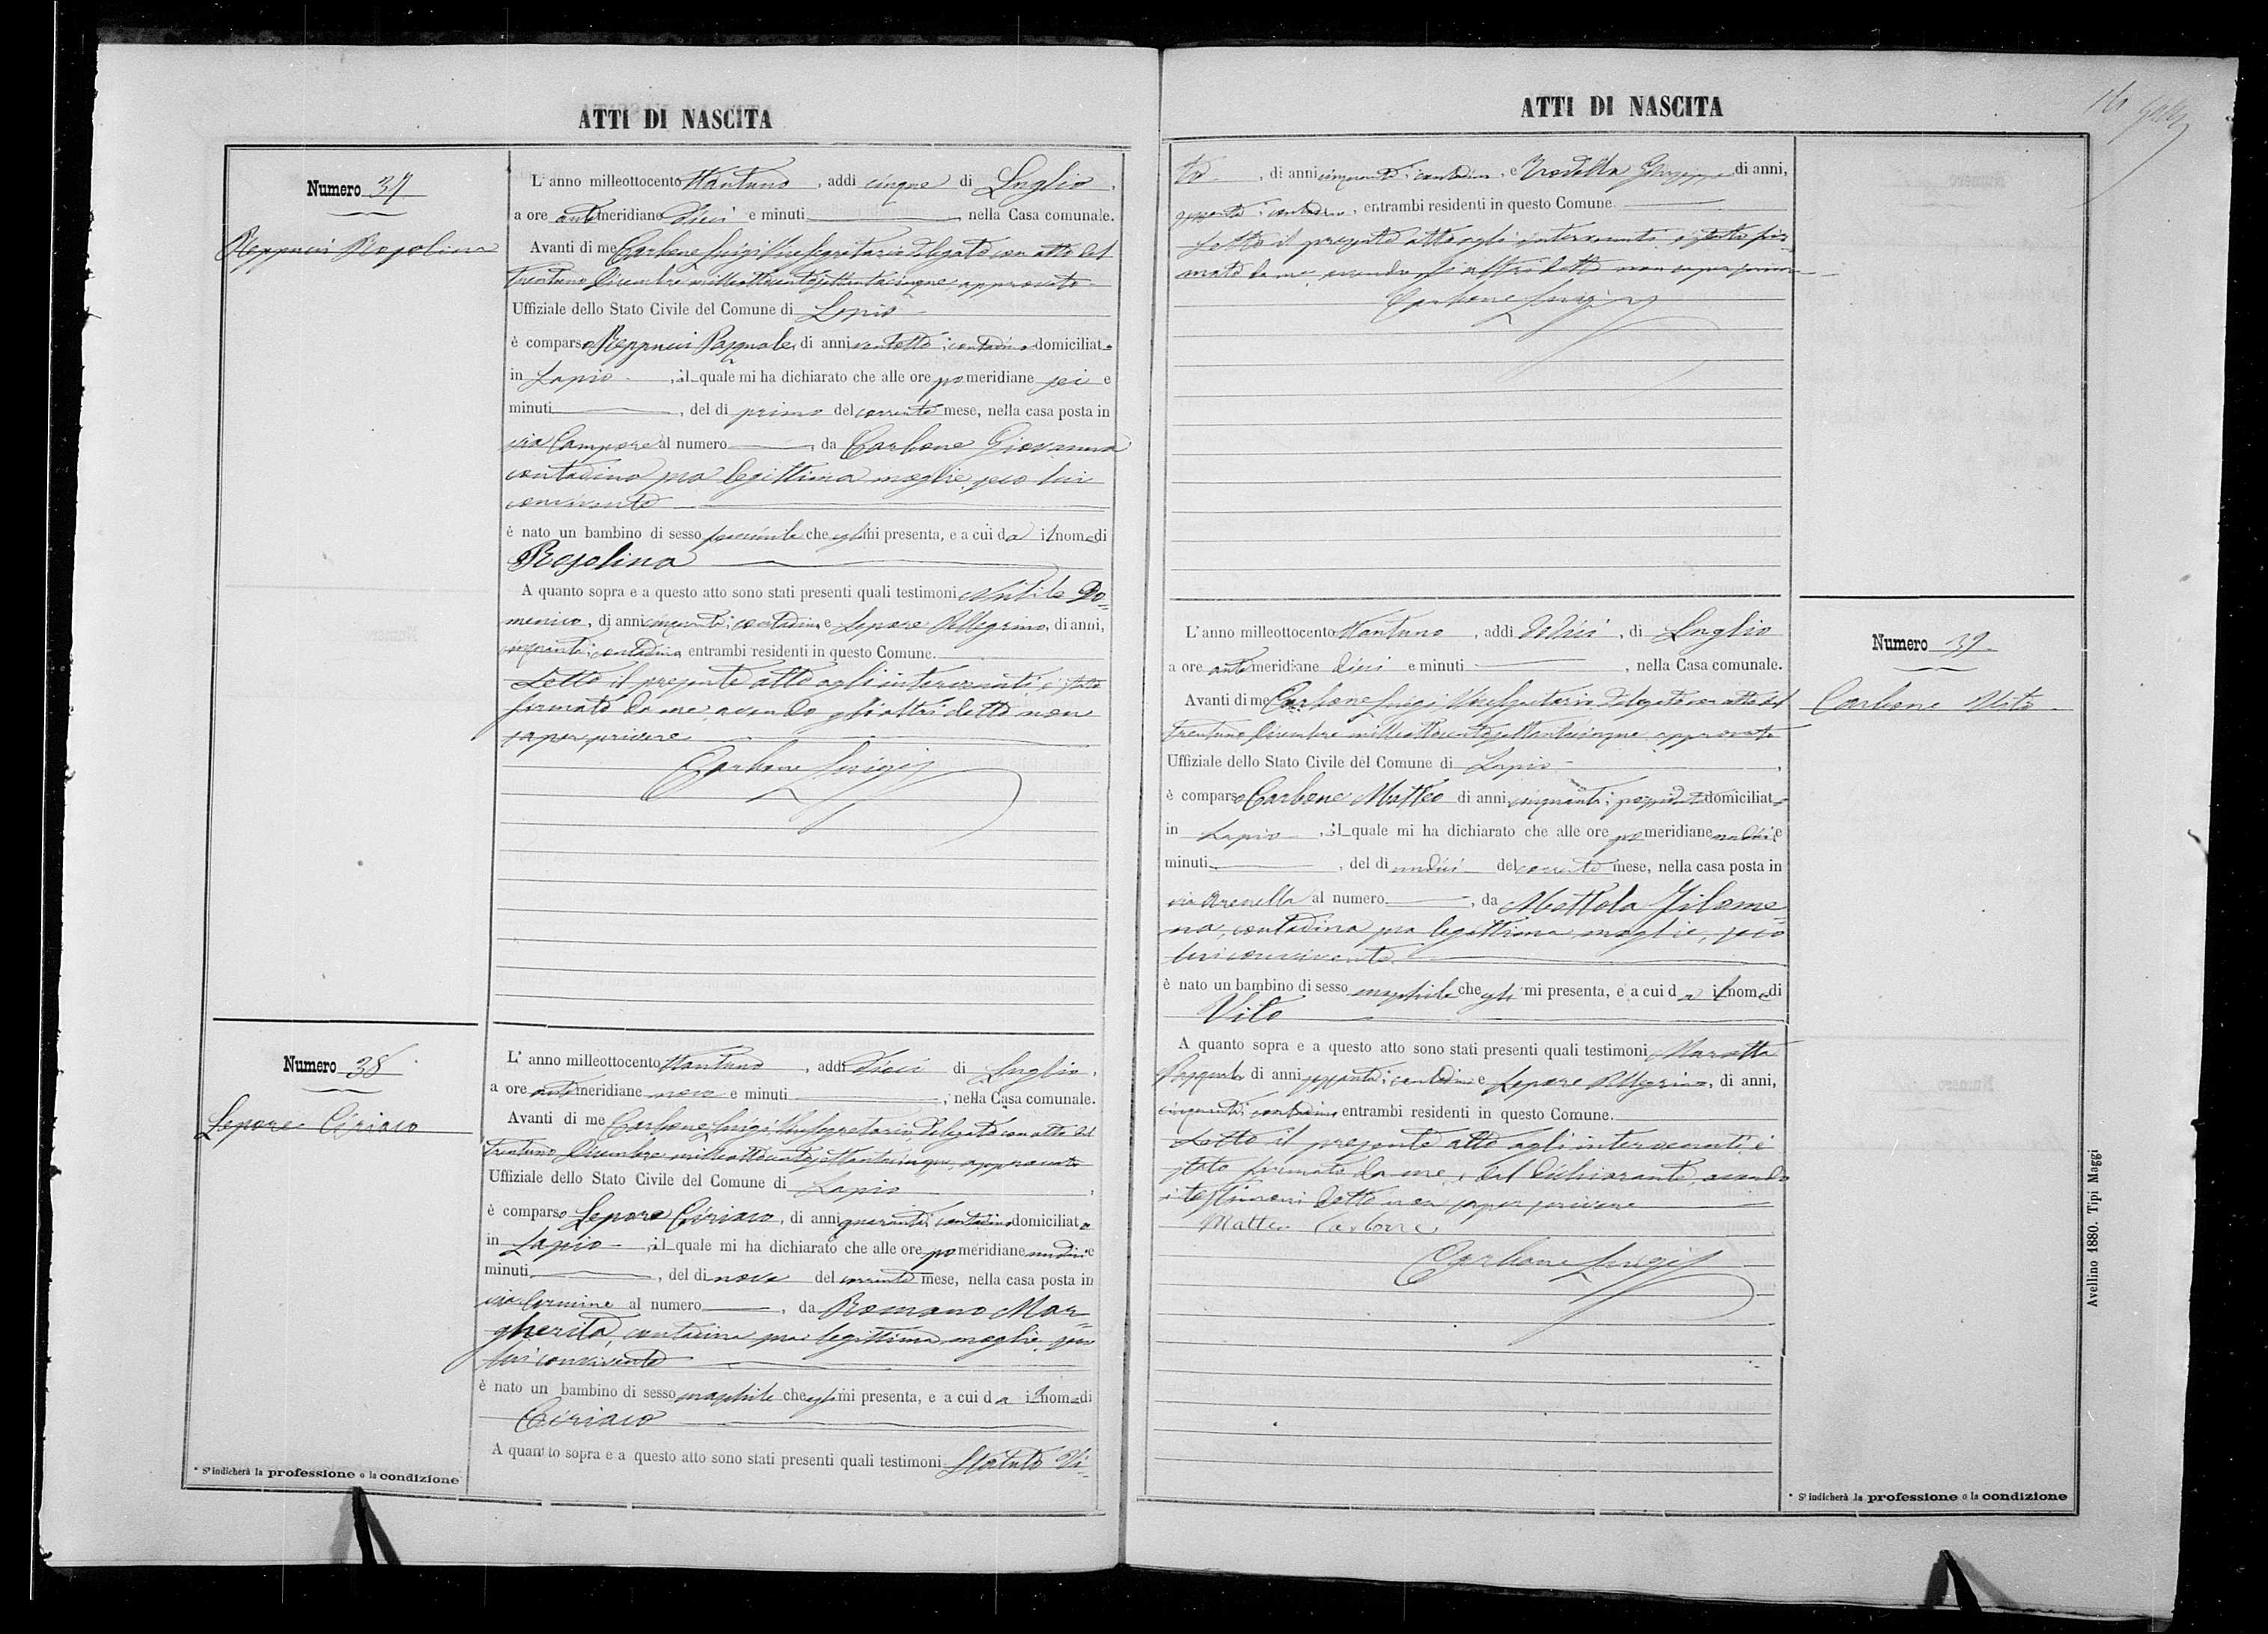 ATTI DI NASCITA
Numero 37
Reppucci Rosolina
L'anno milleottocento ottantuno, addì cinque di Luglio,
a ore antimeridiane dieci e minuti , nella Casa comunale.
Avanti di me Carbone Luigi Vicesegretario delegato con atto del
trentuno Dicembre milleottocentosettantacinque, approvato
Uffiziale dello Stato Civile del Comune di Lapio
è comparso Reppucci Pasquale, di anni ventotto, contadino domiciliato
in Lapio, il quale mi ha dichiarato che alle ore pomeridiane sei e
minuti , del dì primo del corrente mese, nella casa posta in
via Campore al numero , da Carbone Giovanna
contadina sua legittima moglie, seco lui
convivente
è nato un bambino di sesso femminile che egli mi presenta, e a cui da il nome di
Rosolina
A quanto sopra e a questo atto sono stati presenti quali testimoni Do-
menico, di anni cinquanta, contadino e Lepore Pellegrino, di anni,
cinquanta, contadino, entrambi residenti in questo Comune.
Letto il presente atto agli intervenuti, è stato
firmato da me, avendo gli altri detto non
saper scrivere
Carbone Luigi
Numero 38
Lepore Ciriaco
L'anno milleottocento ottantuno, addì dieci di Luglio,
a ore antimeridiane nove e minuti , nella Casa comunale.
Avanti di me Carbone Luigi Vicesegretario delegato con atto del
trentuno Dicembre milleottocentosettantacinque, approvato
Uffiziale dello Stato Civile del Comune di Lapio,
è comparso Lepore Ciriaco, di anni quaranta, contadino domiciliato
in Lapio, il quale mi ha dichiarato che alle ore pomeridiane undici e
minuti , del dì nove del corrente mese, nella casa posta in
via Carmine al numero , da Romano Mar-
gherita, contadina sua legittima moglie, seco
lui convivente
è nato un bambino di sesso maschile che egli mi presenta, e a cui da il nome di
Ciriaco
A quanto sopra e a questo atto sono stati presenti quali testimoni Vi-
* S'indicherà la professione o la condizione
ATTI DI NASCITA
to, di anni cinquanta, contadino, e Trodella Giuseppe di anni,
sessanta, contadino, entrambi residenti in questo Comune
Letto il presente atto agli intervenuti, è stato fir-
mato da me, avendo gli altri detto non saper scrivere
Carbone Luigi
L'anno milleottocento ottantuno, addì dodici, di Luglio
a ore antimeridiane dieci e minuti , nella Casa comunale.
Avanti di me Carbone Luigi Vicesegretario delegato con atto del
trentuno Dicembre milleottocentosettantacinque, approvato
Uffiziale dello Stato Civile del Comune di Lapio,
è comparso Carbone Matteo di anni cinquanta, domiciliato
in Lapio, il quale mi ha dichiarato che alle ore pomeridiane undici e
minuti , del dì undici del corrente mese, nella casa posta in
via Arenella al numero , da Mottola Filome-
na, contadina sua legittima moglie, seco
lui convivente
è nato un bambino di sesso maschile che egli mi presenta, e a cui da il nome di
Vito
A quanto sopra e a questo atto sono stati presenti quali testimoni
Pasquale di anni sessanta, contadino e Lepore Pellegrino, di anni,
cinquanta, contadino entrambi residenti in questo Comune.
Letto il presente atto agli intervenuti, è
stato firmato da me, e dal dichiarante, avendo
i testimoni detto non saper scrivere
Matteo Carbone
Carbone Luigi
Numero 39
Carbone Vito
* S'indicherà la professione o la condizione
Avellino 1880. Tipi Maggi